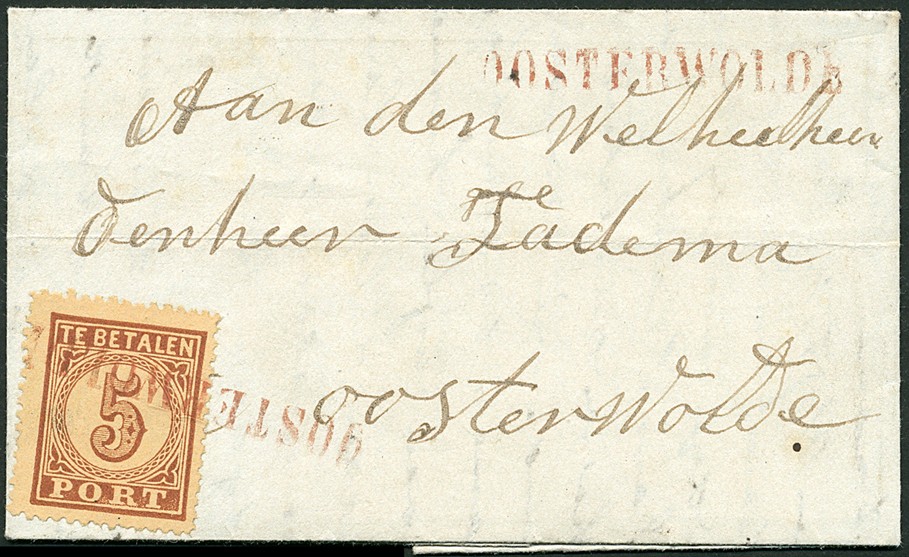 OOSTERWOLDE
Aan den Welheelheer
Denheer Tadema
Oosterwolde
TE BETALEN
5
PORT
OOSTERWOLDE